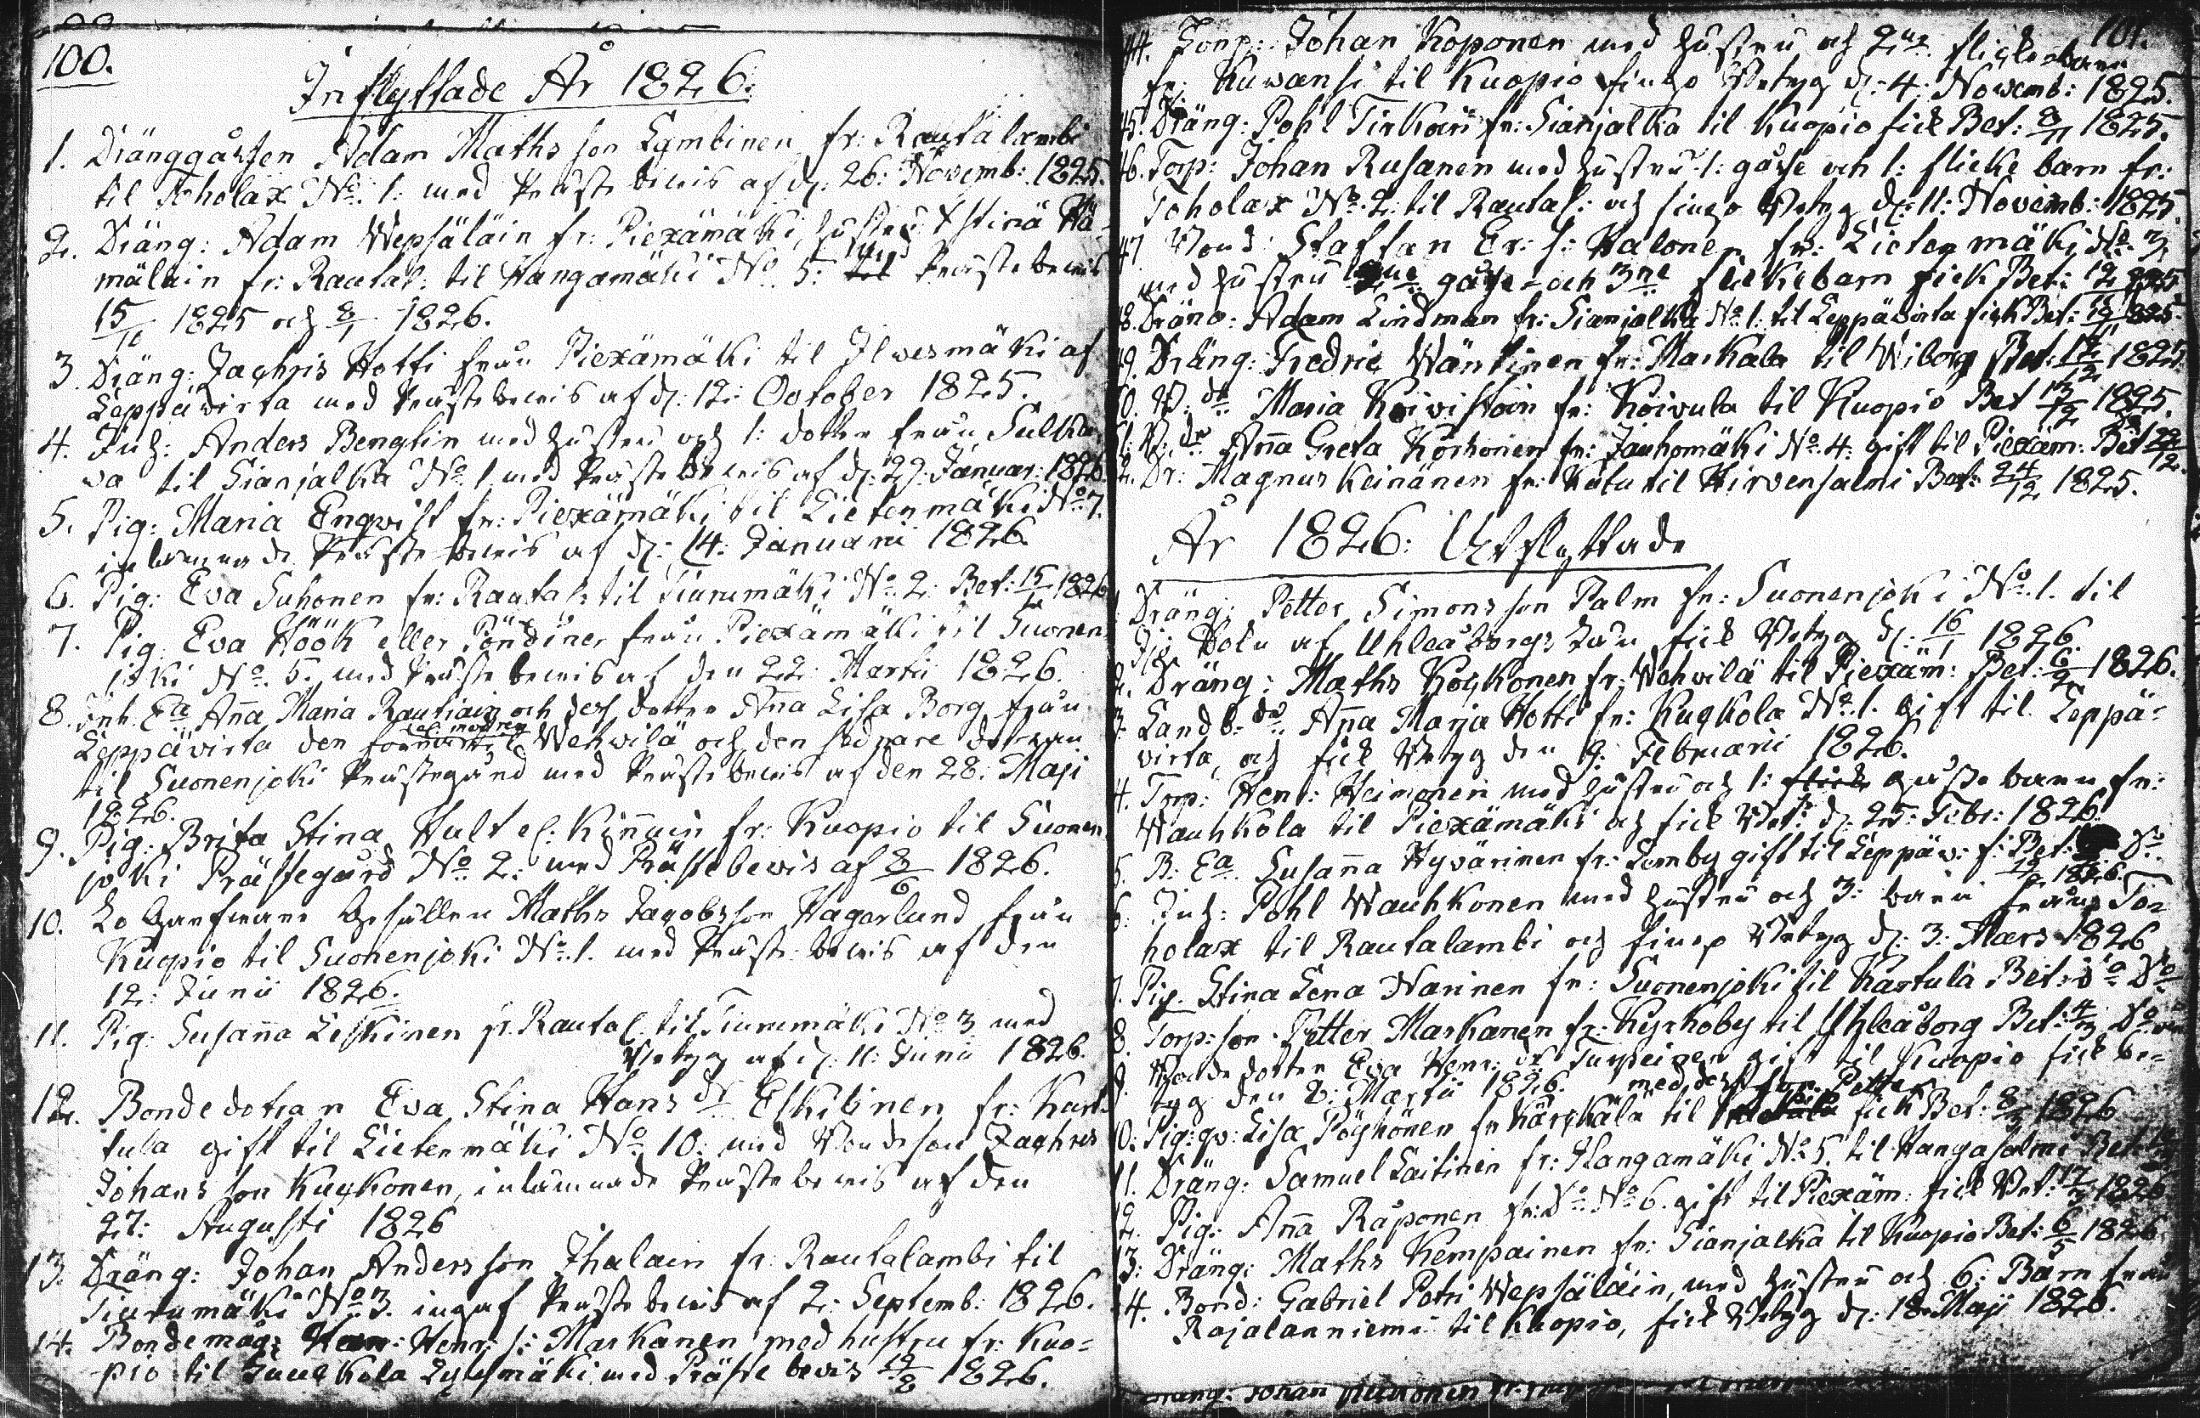 100.
Inflyttade År 1826.
1. Dränggåssen Adam Mathsson Lymbinen fr: Rautalambi
til Toholax No. 1. med Prästebevis af d. 26. Novemb: 1825.
2. Dräng: Adam Wepsäläin fr: Piexämäki, hustru Stina Hä-
mäläin fr: Rautal: til Hangamäki No 5. med Prästebevis
15/11 1825 och 8/1 1826.
3. Dräng: Zachris Hotti från Piexämäki til Ilvesmäki af
Leppävirta med Prästebevis af d: 12. October 1825.
4. Inh: Anders Benglin med hustru och 1: dotter från Sulka-
va til Sianjalka No 1. med Prästebevis af d: 29. Januar: 1826
5. Pig: Maria Enqvist fr: Piexämäki til Lietenmäki No 7.
inlämnade Prästebevis af d: 14. Januarii 1826.
6. Pig: Eva Suhonen fr: Rautal: til Tiurumäki No 2. Bet: 15/ 1826
7. Pig: Eva Höök eller Pöndinen från Piexämäki til Suonen-
joki No. 5. med Prästebevis af den 22. Martii 1826.
8. Inh. Ea Anna Maria Rautiain och dess dotter Anna Lisa Borg från
Leppävirta den Wehvilä och den sednare dottren
til Suonenjoki Prästegård med Prästebevis af den 28. Maji
1826.
9. Pig: Brita Stina Hult el. Kinnuin fr: Kuopio til Suonen-
joki Prästegård No 2. med Prästebevis af 8/6 1826.
10. Lo Garfware Gesällen Maths Jacobsson Hagerlund från
Kuopio til Suonenjoki No. 1. med Prästebevis af den
12. Junii 1826.
11. Pig: Susanna Leskinen fr. Rautal. til Tiurumäki No 3 med
Betyg af d: 11. Junii 1826.
12. Bondedotran Eva Stina Hans dr Eskelinen fr: Kart-
tula gift til Lietenmäki No 10: med Bondeson Zachris
Johansson Kuckonen, inlämnade Prästebevis af den
27: Augusti 1826
13. Dräng: Johan Andersson Ihalain fr: Rautalambi til
Tiurumäki No 3. ingaf Prästebevis af 2. Septemb: 1826.
14. Bondemåg: Henr: s: Markanen med hustru fr: Kuo-
pio til Lyytymäki med Präste bevis 12/8 1826.
101.
44. Torp: Johan Koponen med hustru och 2ne flickebarn
fr: Kuwansi til Kuopio fingo Betyg d: 4: Novemb: 1825.
45. Dräng: Pohl Tirkoin fr: Sianjalka til Kuopio fick Bet: 8/11 1825.
46. Torp: Johan Rusanen med hustru 1: gåsse och 1: flicke barn fr:
Toholax No. 2. til Rautal: och fingo Betyg d: 11: Novemb: 1825.
47 Bond: Staffan Er: s: Halonen fr: Lietenmäki No 3
med hustru 2ne gåsse- och 3ne flickebarn fick Bet: 12/ 1825
48. Dräng: Adam Lindman fr: Sianjalka No 1. til Leppävirta fick Bet: 18/11 1825.
49. Dräng: Fredric Wäntinen fr: Markala til Wiborg Bet: 12/12 1825.
50. B: dr Maria Koivistoin fr: Koivula til Kuopio Bet 13/12 1825.
51. B: dr Anna Greta Korhonen fr: Jauhomäki No 4. gift til Piexäm: Bet 22/12.
52. Dr: Magnus Keinänen fr: Katu til Hirvensalmi Bet: 24/12 1825.
År 1826: Utflyttade
1. Dräng: Petter Simonsson Palm fr: Suonenjoki No. 1. til
af Uhleåborgs Län fick Betyg d: 16/1 1826.
2. Dräng: Maths Kockonen fr: Wehvilä til Piexäm: Bet: 6/2 1826.
3. Landb: dr Anna Maria Hotti fr: Kuckola No. 1. gift til Leppä-
virta, och fick Betyg den 9. Februarii 1826.
4. Torp: Hen: Heimonen med hustru och 1: gåsse barn fr:
Wauhkola til Piexämäki och fick Bet: d: 25. Febr: 1826.
5. B: Ea Susanna Hyvärinen fr: Lumby gift til Leppäv: f: Bet: Do.
6. Inh: Pohl Wauhkonen med hustru och 3: barn från To-
holax til Rautalambi och fingo Betyg d: 3. Mars 1826
7. Pig. Stina Lena Narinen fr: Suonenjoki til Karttula Bet: Do Do
8. Torp: son Petter Markanen fr: Kyrkoby til Uhleåborg Bet: 4/3 Do
9. Bondedotter Eva Henr: dr gift til Kuopio fick be-
tyg den 8. Martii 1826. med dess son Petter
10. Pig: qv: Lisa Pöyhönen fr Kärkkälä til fick Bet: 8/3 1826
11. Dräng: Samuel Laitinen fr: Hangamäki No 5. til Hangasalmi Bet:
12. Pig: Anna Raponen fr: Do No 6. gift til Piexäm: fick Bet: 17/3 1826
13. Dräng: Maths Kempainen fr: Sianjalka til Kuopio Bet: 6/5 1826
14. Bond: Gabriel Petri Wepsäläin, med hustru och 6: Barn från
Rajalanniemi til Kuopio, fick Betyg d: 18. Maji 1826.